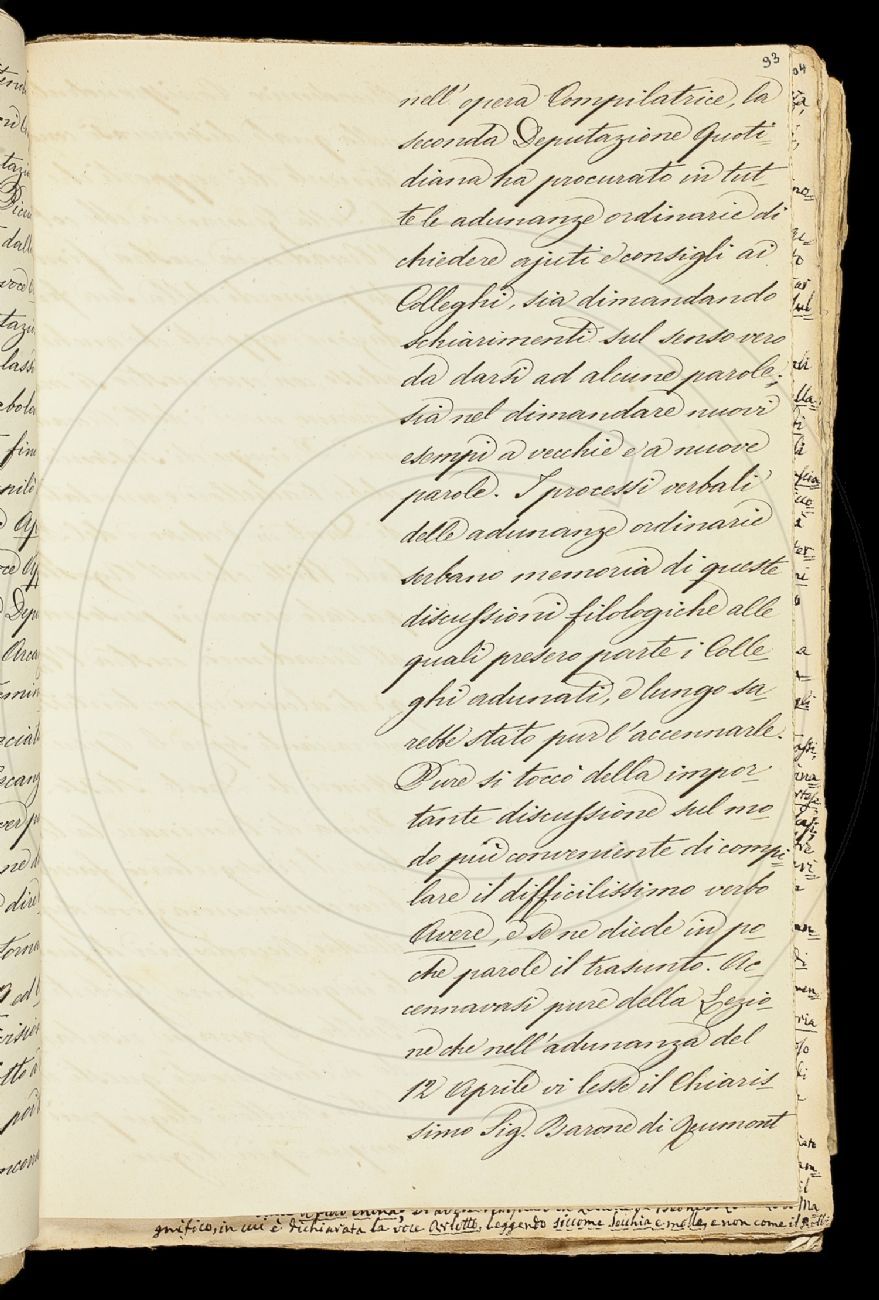 93
nell' opera Compilatrice, la
seconda Deputazione Quoti-
diana ha procurato in tut-
te le adunanze ordinarie di
chiedere ajuti e consigli ai
Colleghi, sia dimandando
schiarimenti sul senso vero
da darsi ad alcune parole;
sia nel dimandare nuovi
esempi a vecchie e a nuove
parole. I processi verbali
delle adunanze ordinarie
serbano memoria di queste
discussioni filologiche alle
quali presero parte i Colle-
ghi adunati, e lungo sa-
rebbe stato pur l'accennarle.
Pure si toccò della impor-
tante discussione sul mo-
do più conveniente di compi-
lare il difficilissimo verbo
Avere, e se ne diede in po-
che parole il trasunto. Ac-
cennavasi pure della Lezio-
ne che nell'adunanza del
12 Aprile vi lesse il Chiaris-
simo Sig. Barone di Reumont
gnifico, in cui è dichiarata la voce Arlotto, leggendo siccome Secchia e molle, e non come il